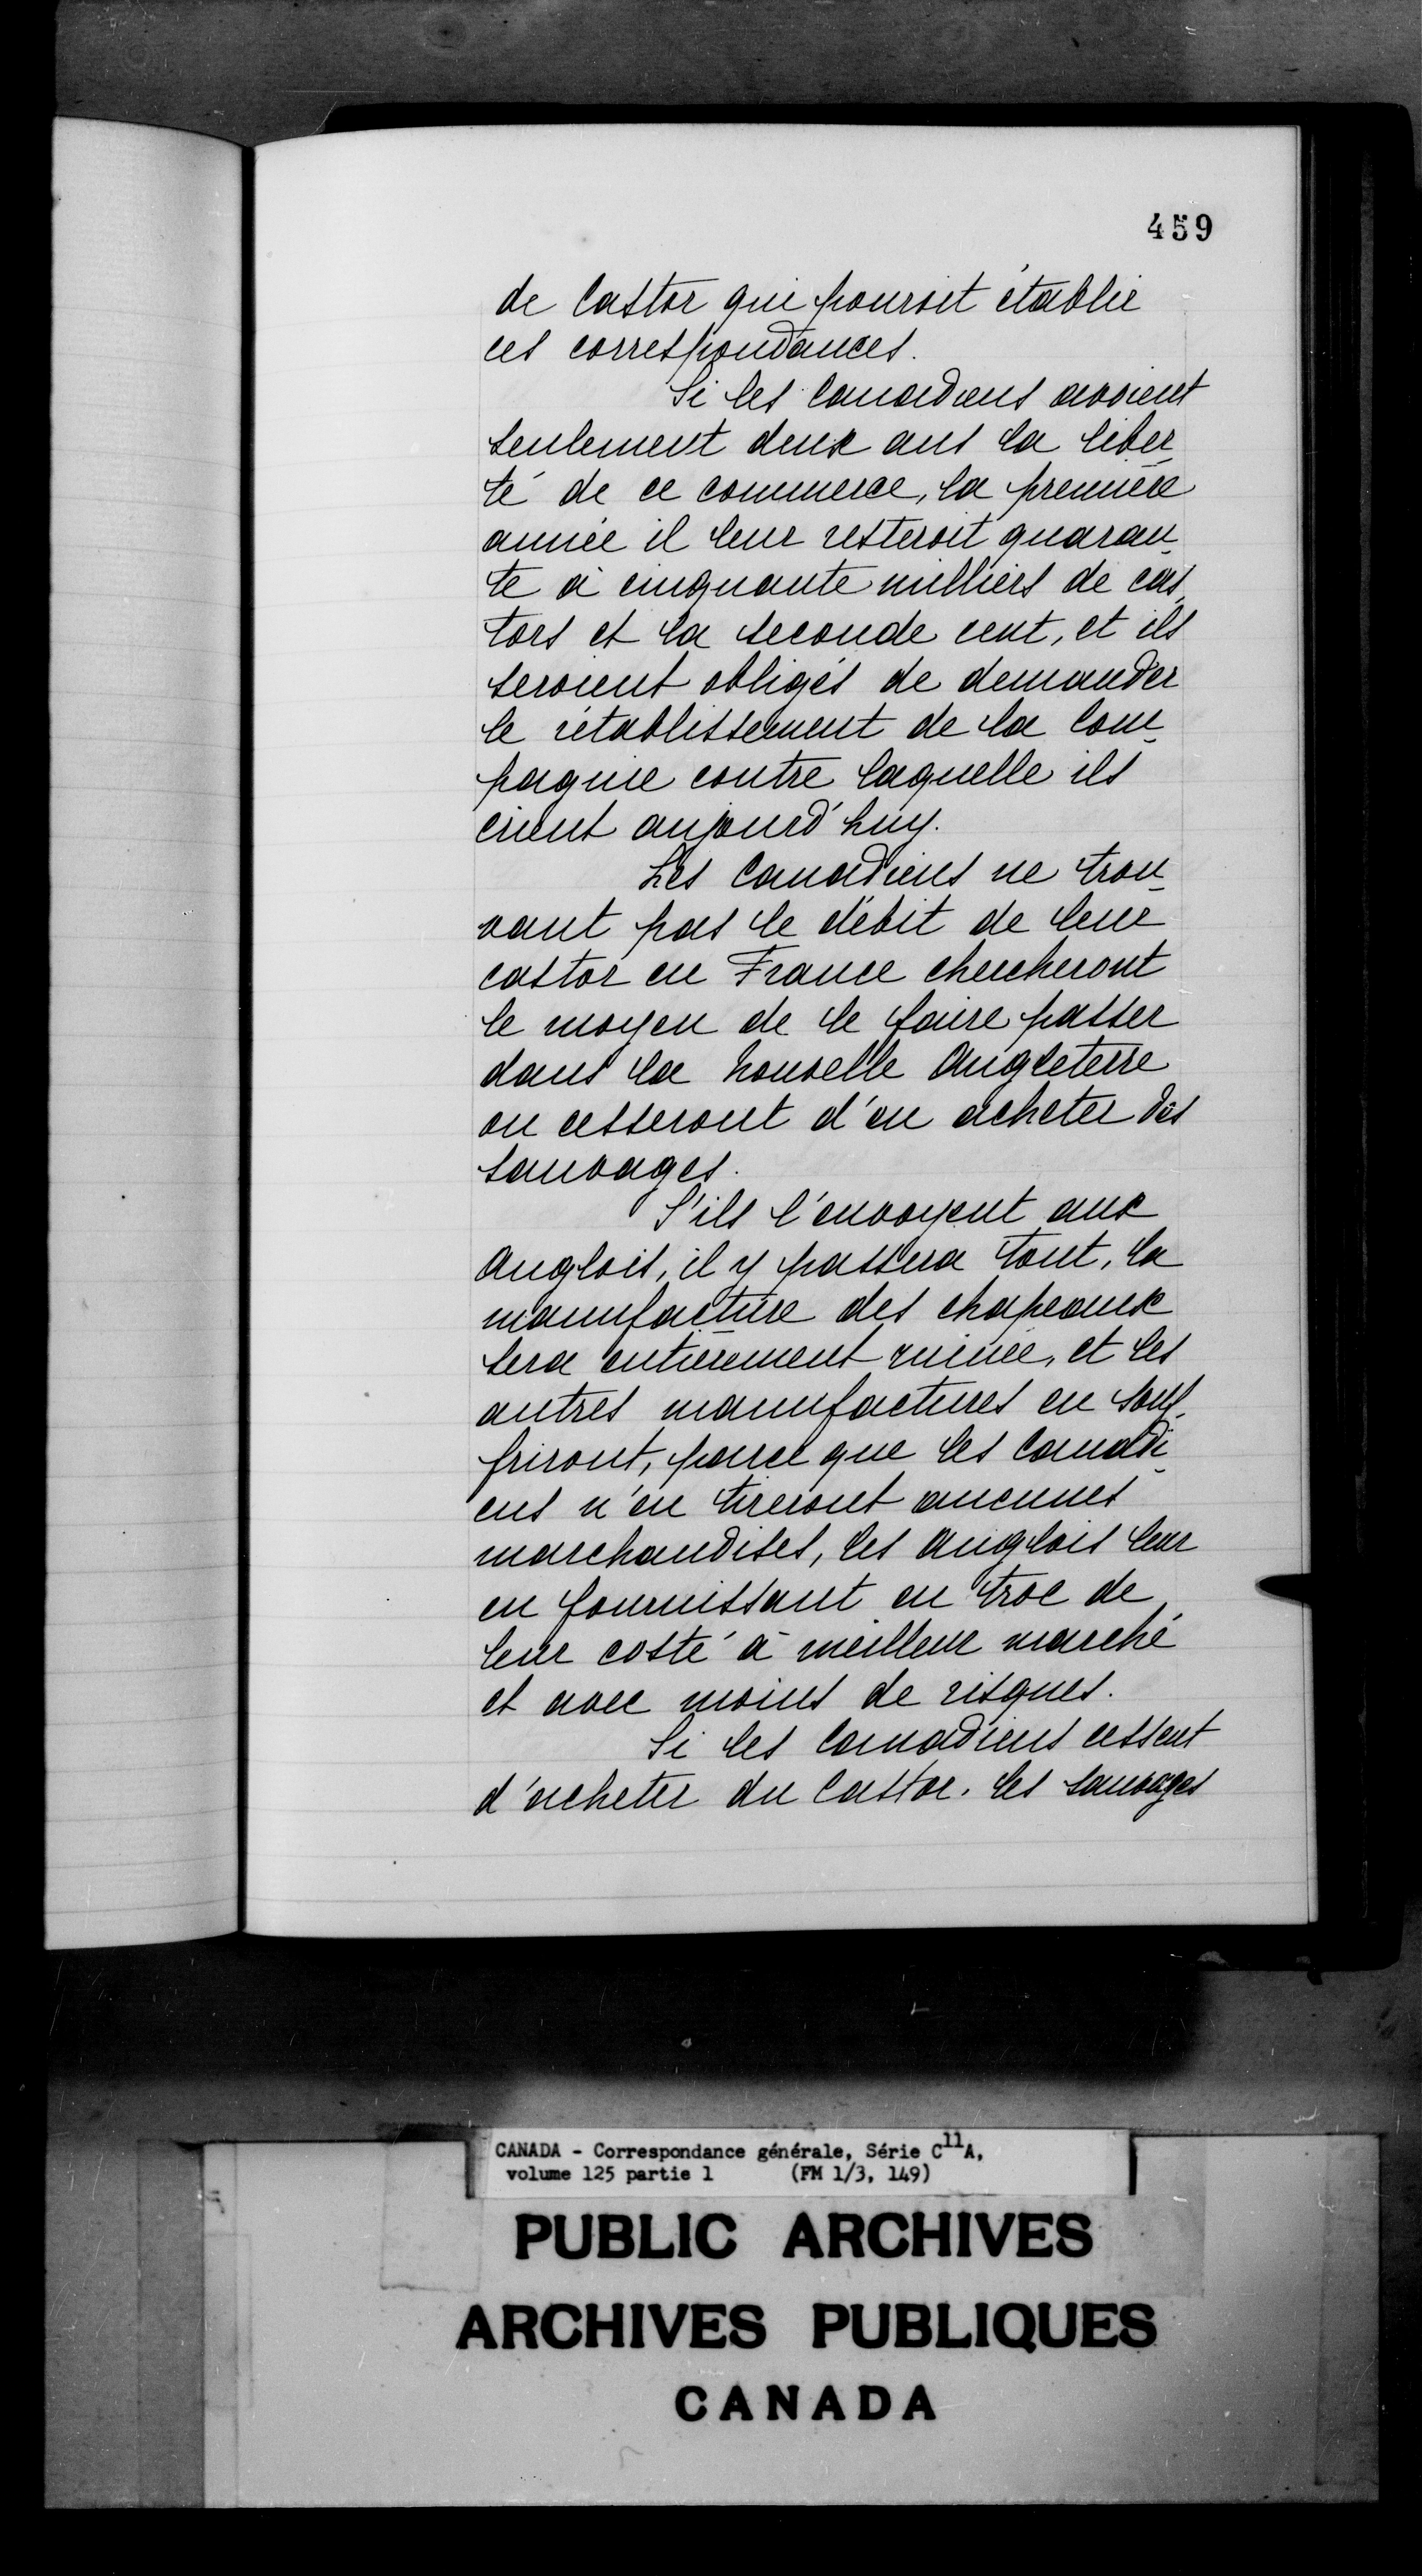 459
de Castor qui pouroit établir
ces correspondances.
Si les Canadiens avoient
seulement deux ans la liber-
té de ce commerce, la première
année il leur resteroit quaran-
te à cinquante milliers de cas-
tors et la seconde cent, et ils
seroient obligés de demander
le rétablissement de la Com-
pagnie contre laquelle ils
crient aujourd'huy.
Les Canadiens ne trou-
vant pas le débit de leur
castor en France chercheront
le moyen de le faire passer
dans la Nouvelle Angleterre
ou cesseront d'en acheter des
sauvages.
S'ils l'envoyent aux
Anglois, il y passera tout, la
manufacture des chapeaux
sera entièrement ruinée, et les
autres manufactures en souf-
friront, parce que les Canadi-
ens n'en tireront aucunes
marchandises, les Anglois leur
en fournissant en troc de
leur costé à meilleur marché
et avec moins de risques.
Si les Canadiens cessent
d'acheter du Castor. les sauvages
CANADA - Correspondance générale, Série C11A,
volume 125 partie 1 (FM 1/3, 149)
PUBLIC ARCHIVES
ARCHIVES PUBLIQUES
CANADA